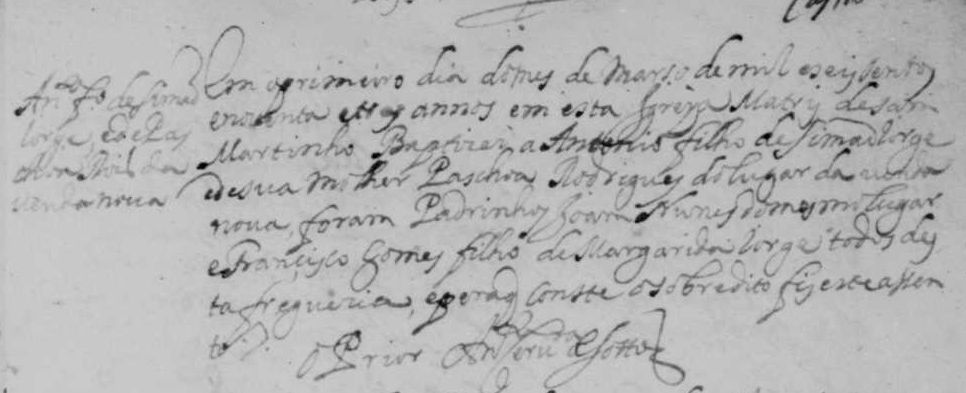 Anto fo de Simaõ
Jorge, e de Pas
choa Roiz da
venda nova
Em oprimeiro dia domes de Marso de mil eseysentos
enoventa etres annos em esta Igreja Matriz de sam
Martinho Baptizei a Antonio filho de Simaõ Jorge
edesua molher Paschoa Rodrigues dolugar da venda
nova, foram Padrinhos Joam Nunes domesmo lugar
e Francisco Gomes filho de Margarida Jorge todos des
ta freguezia, epera q conste osobredito fiz este assen
to.
O Prior